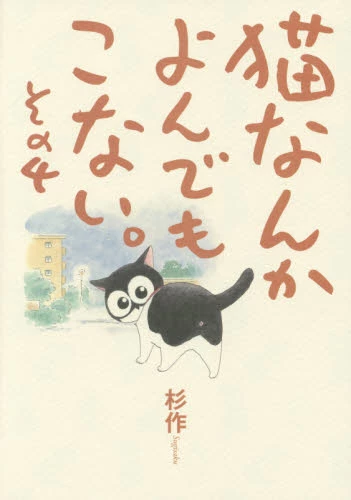 猫なんか
よんでも
こない。
その4
杉作
Sugisaku